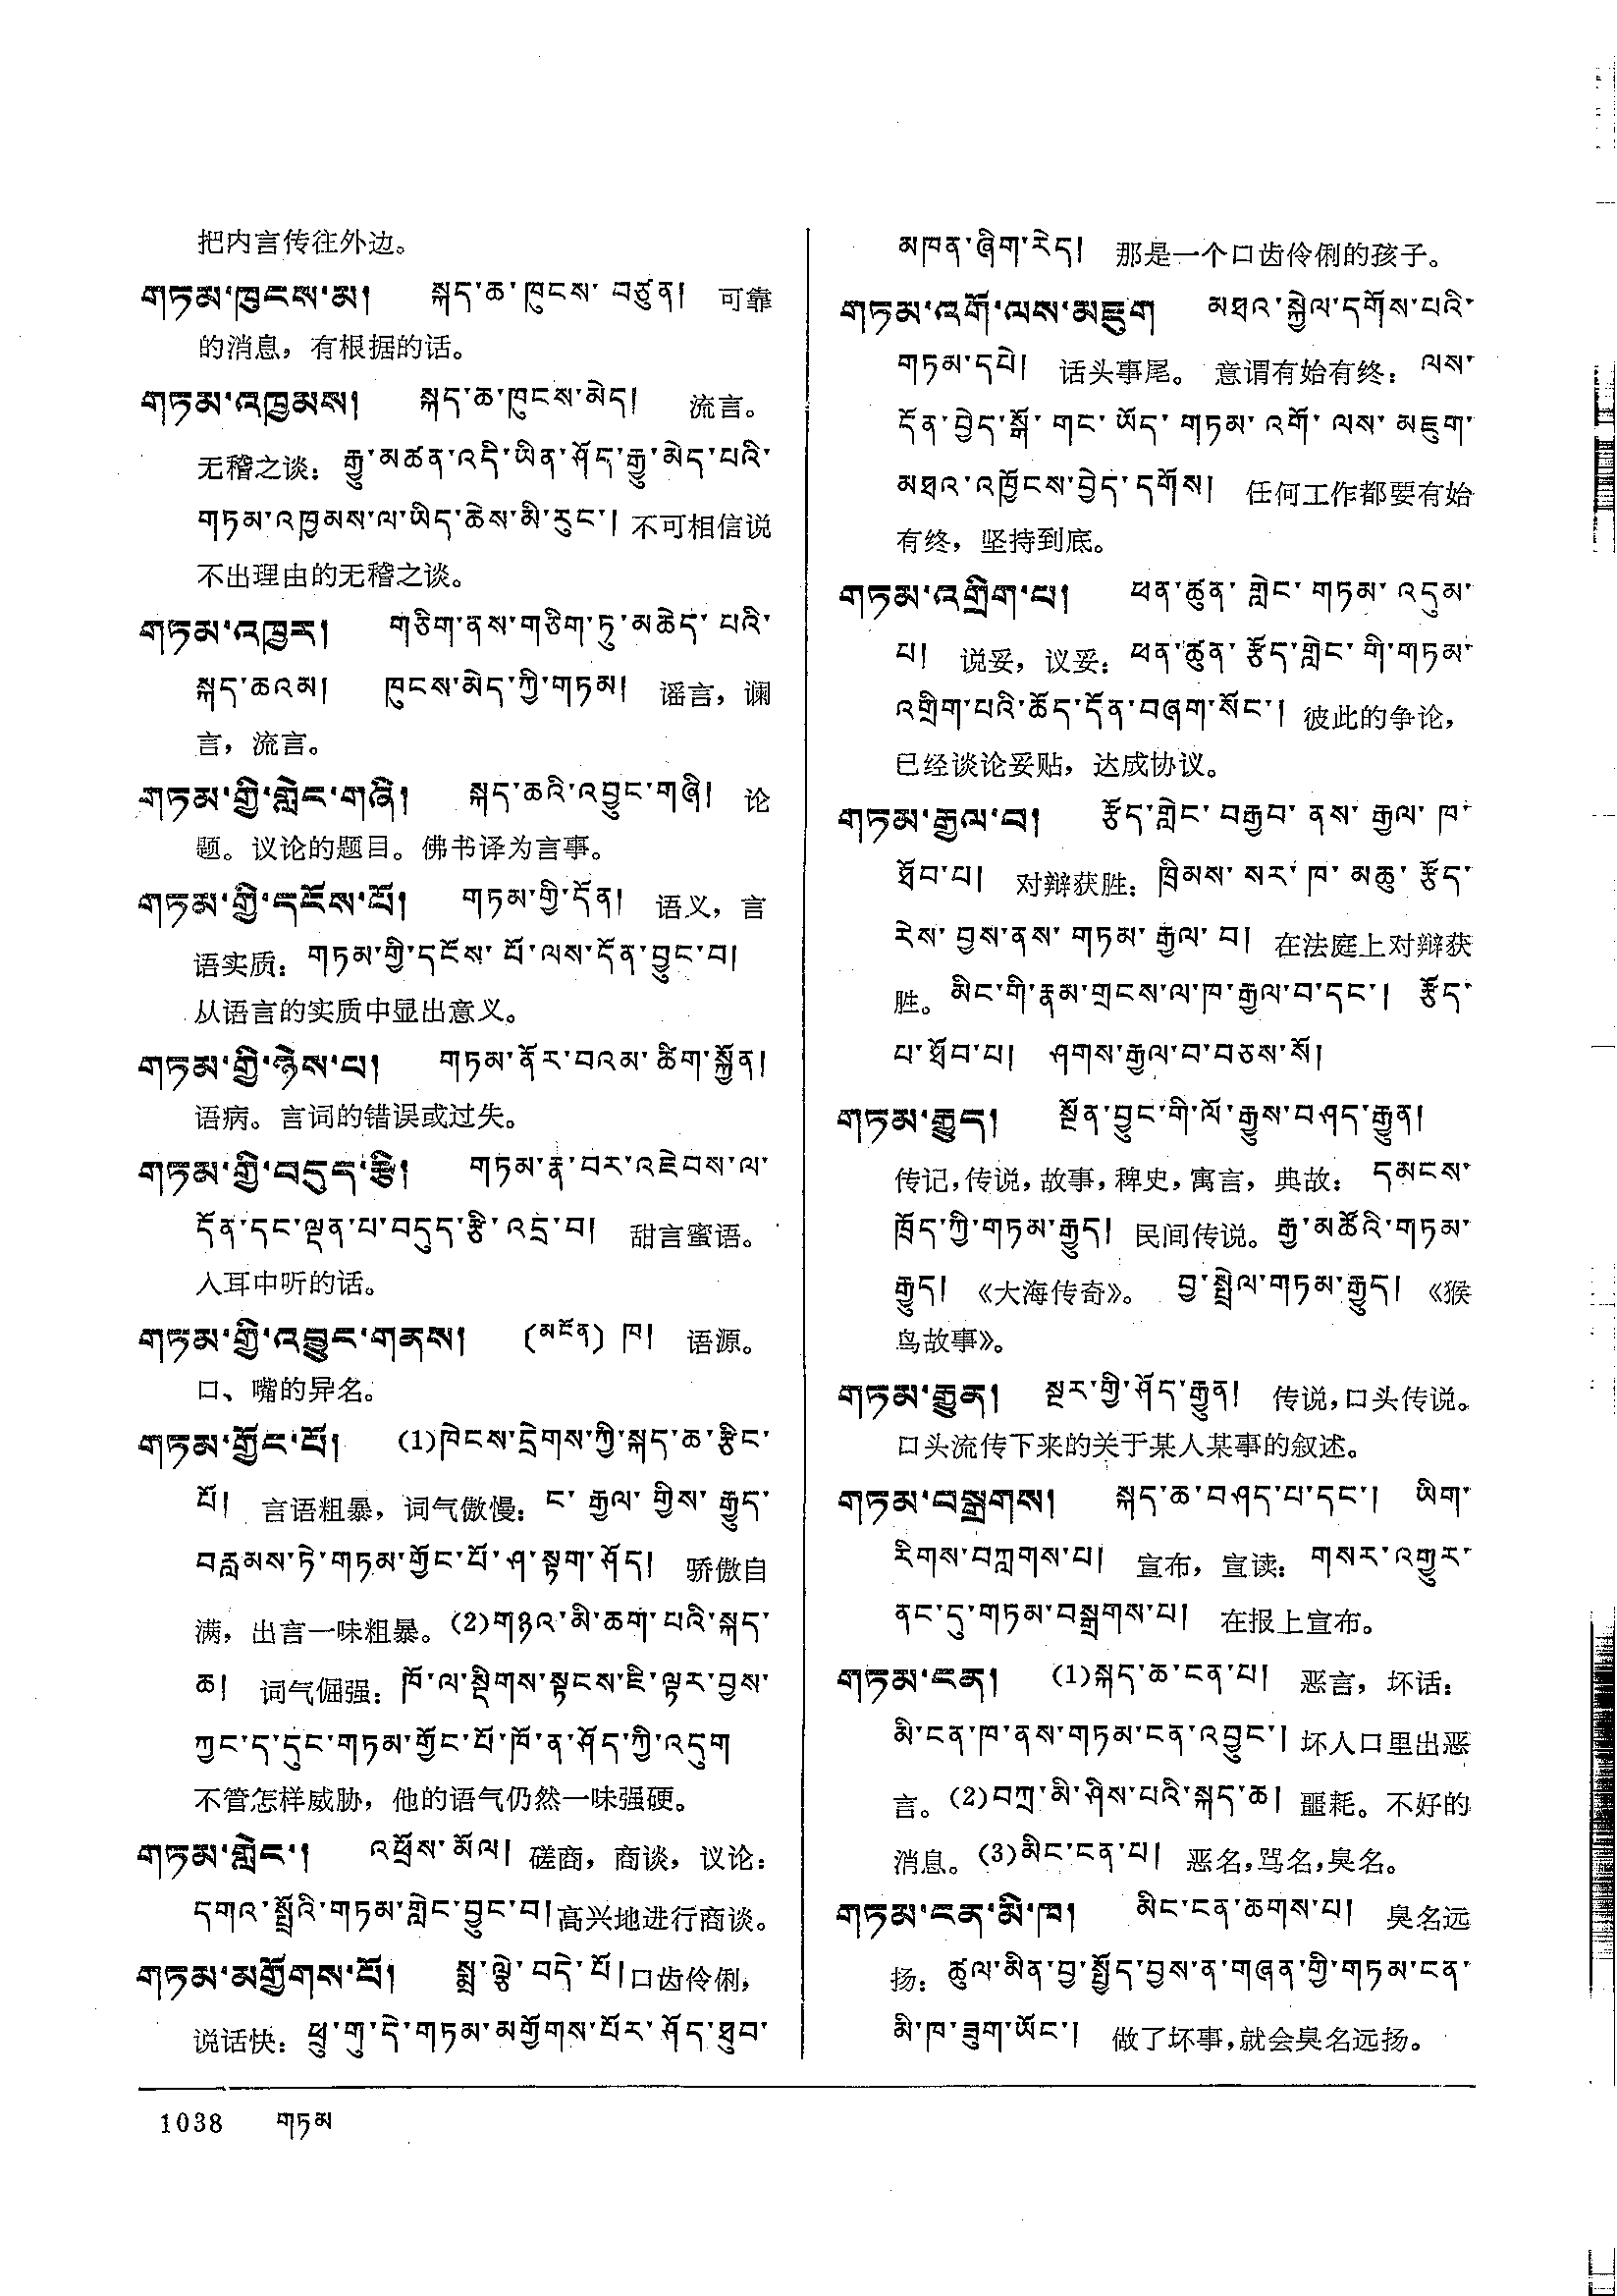 把内言传往外边。
གཏམ་ཁུངས་མ། སྐད་ཆ་ཁུངས་བཙུན། 可靠
的消息，有根据的话。
གཏམ་འཁྱམས། སྐད་ཆ་ཁུངས་མེད། 流言。
无稽之谈：རྒྱུ་མཚན་འདི་ཡིན་ཤོད་རྒྱུ་མེད་པའི་
གཏམ་འཁྱམས་ལ་ཡིད་ཆེས་མི་རུང་། 不可相信说
不出理由的无稽之谈。
གཏམ་འཁྱར། གཅིག་ནས་གཅིག་ཏུ་མཆེད་པའི་
སྐད་ཆའམ། ཁུངས་མེད་ཀྱི་གཏམ། 谣言，谰
言，流言。
གཏམ་གྱི་གླེང་གཞི། སྐད་ཆའི་འབྱུང་གཞི། 论
题。议论的题目。佛书译为言事。
གཏམ་གྱི་དངོས་པོ། གཏམ་གྱི་དོན། 语义，言
语实质：གཏམ་གྱི་དངོས་པོ་ལས་དོན་བྱུང་བ།
从语言的实质中显出意义。
གཏམ་གྱི་ཉེས་པ། གཏམ་ནོར་བའམ་ཚིག་སྐྱོན།
语病。言词的错误或过失。
གཏམ་གྱི་བདུད་རྩི། གཏམ་རྣ་བར་འཇེབས་ལ་
དོན་དང་ལྡན་པ་བདུད་རྩི་འདྲ་བ། 甜言蜜语。
入耳中听的话。
གཏམ་གྱི་འབྱུང་གནས། (མངོན) ཁ། 语源。
口、嘴的异名。
གཏམ་གྱོང་པོ། (1)ཁེངས་དྲེགས་ཀྱི་སྐད་ཆ་རྩིང་
པོ། 言语粗暴，词气傲慢：ང་རྒྱལ་གྱིས་རྒྱུད་
བརླམས་ཏེ་གཏམ་གྱོང་པོ་ཤ་སྟག་ཤོད། 骄傲自
满，出言一味粗暴。(2)གཉའ་མི་ཆག་པའི་སྐད་
ཆ། 词气倔强：ཁོ་ལ་སྡིགས་སྟངས་ཇི་ལྟར་བྱས་
ཀྱང་ད་དུང་གཏམ་གྱོང་པོ་ཁོ་ན་ཤོད་ཀྱི་འདུག
不管怎样威胁，他的语气仍然一味强硬。
གཏམ་གླེང་། འཕྲོས་མོལ། 磋商，商谈，议论：
དགའ་སྤྲོའི་གཏམ་གླེང་བྱུང་བ། 高兴地进行商谈。
གཏམ་མགྱོགས་པོ། སྨྲ་ལྕེ་བདེ་པོ། 口齿伶俐，
说话快：ཕྲུ་གུ་དེ་གཏམ་མགྱོགས་པོར་ཤོད་ཐུབ་
མཁན་ཞིག་རེད། 那是一个口齿伶俐的孩子。
གཏམ་འགོ་ལས་མཇུག མཐའ་སྐྱེལ་དགོས་པའི་
གཏམ་དཔེ། 话头事尾。意谓有始有终：ལས་
དོན་བྱེད་སྒོ་གང་ཡོད་གཏམ་འགོ་ལས་མཇུག་
མཐའ་འཁྱོངས་བྱེད་དགོས། 任何工作都要有始
有终，坚持到底。
གཏམ་འགྲིག་པ། ཕན་ཚུན་གླེང་གཏམ་འདུམ་
པ། 说妥，议妥：ཕན་ཚུན་རྩོད་གླེང་གི་གཏམ་
འགྲིག་པའི་ཆོད་དོན་བཞག་སོང་། 彼此的争论，
已经谈论妥贴，达成协议。
གཏམ་རྒྱལ་བ། རྩོད་གླེང་བརྒྱབ་ནས་རྒྱལ་ཁ་
ཐོབ་པ། 对辩获胜：ཁྲིམས་སར་ཁ་མཆུ་རྩོད་
རེས་བྱས་ནས་གཏམ་རྒྱལ་བ། 在法庭上对辩获
胜。མིང་གི་རྣམ་གྲངས་ལ་ཁ་རྒྱལ་བ་དང་། རྩོད་
པ་ཐོབ་པ། ཤགས་རྒྱལ་བ་བཅས་སོ།
གཏམ་རྒྱུད། སྔོན་བྱུང་གི་ལོ་རྒྱུས་བཤད་རྒྱུན།
传记，传说，故事，稗史，寓言，典故：དམངས་
ཁྲོད་ཀྱི་གཏམ་རྒྱུད། 民间传说。རྒྱ་མཚོའི་གཏམ་
རྒྱུད། 《大海传奇》。 བྱ་སྤྲེལ་གཏམ་རྒྱུད། 《猴
鸟故事》。
གཏམ་རྒྱུན། སྔར་གྱི་ཤོད་རྒྱུན། 传说，口头传说。
口头流传下来的关于某人某事的叙述。
གཏམ་བསྒྲགས། སྐད་ཆ་བཤད་པ་དང་། ཡིག་
རིགས་བཀླགས་པ། 宣布，宣读：གསར་འགྱུར་
ནང་དུ་གཏམ་བསྒྲགས་པ། 在报上宣布。
གཏམ་ངན། (1)སྐད་ཆ་ངན་པ། 恶言，坏话：
མི་ངན་ཁ་ནས་གཏམ་ངན་འབྱུང་། 坏人口里出恶
言。(2)བཀྲ་མི་ཤིས་པའི་སྐད་ཆ། 噩耗。不好的
消息。(3)མིང་ངན་པ། 恶名，骂名，臭名。
གཏམ་ངན་མི་ཁ། མིང་ངན་ཆགས་པ། 臭名远
扬：ཚུལ་མིན་བྱ་སྤྱོད་བྱས་ན་གཞན་གྱི་གཏམ་ངན་
མི་ཁ་ཟུག་ཡོང་། 做了坏事，就会臭名远扬。
1038 གཏམ